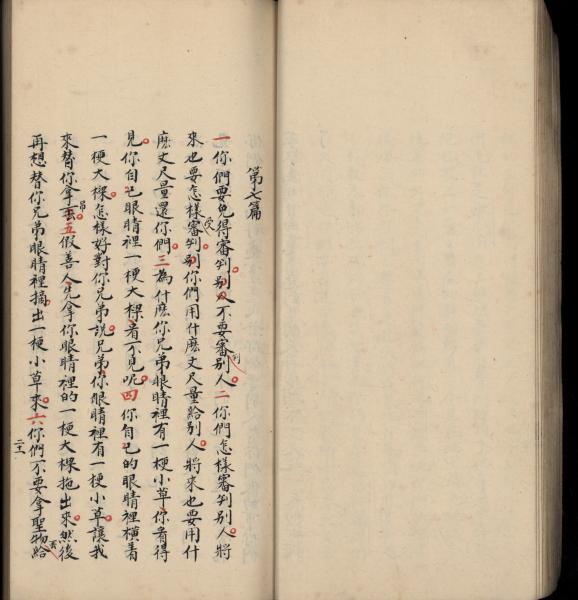 第七篇
一你們要免得受審判別人不要審判別人二你們怎樣審判別人將
來也要怎樣審判別你們用什麽丈尺量給別人將來也要用什
麽丈尺量還你們三為什麽你兄弟眼睛裡有一梗小草你看得
見你自已眼睛裡一梗大樑看不見呢四你自已的眼睛裡橫着
一梗大樑怎樣好對你兄弟説兄弟你眼睛裡有一梗小草讓我
來替你拿五假善人先拿你眼睛裡的一梗大樑拖出來然後
再想替你兄弟眼睛裡摘出一梗小草來六你們不要拿聖物給